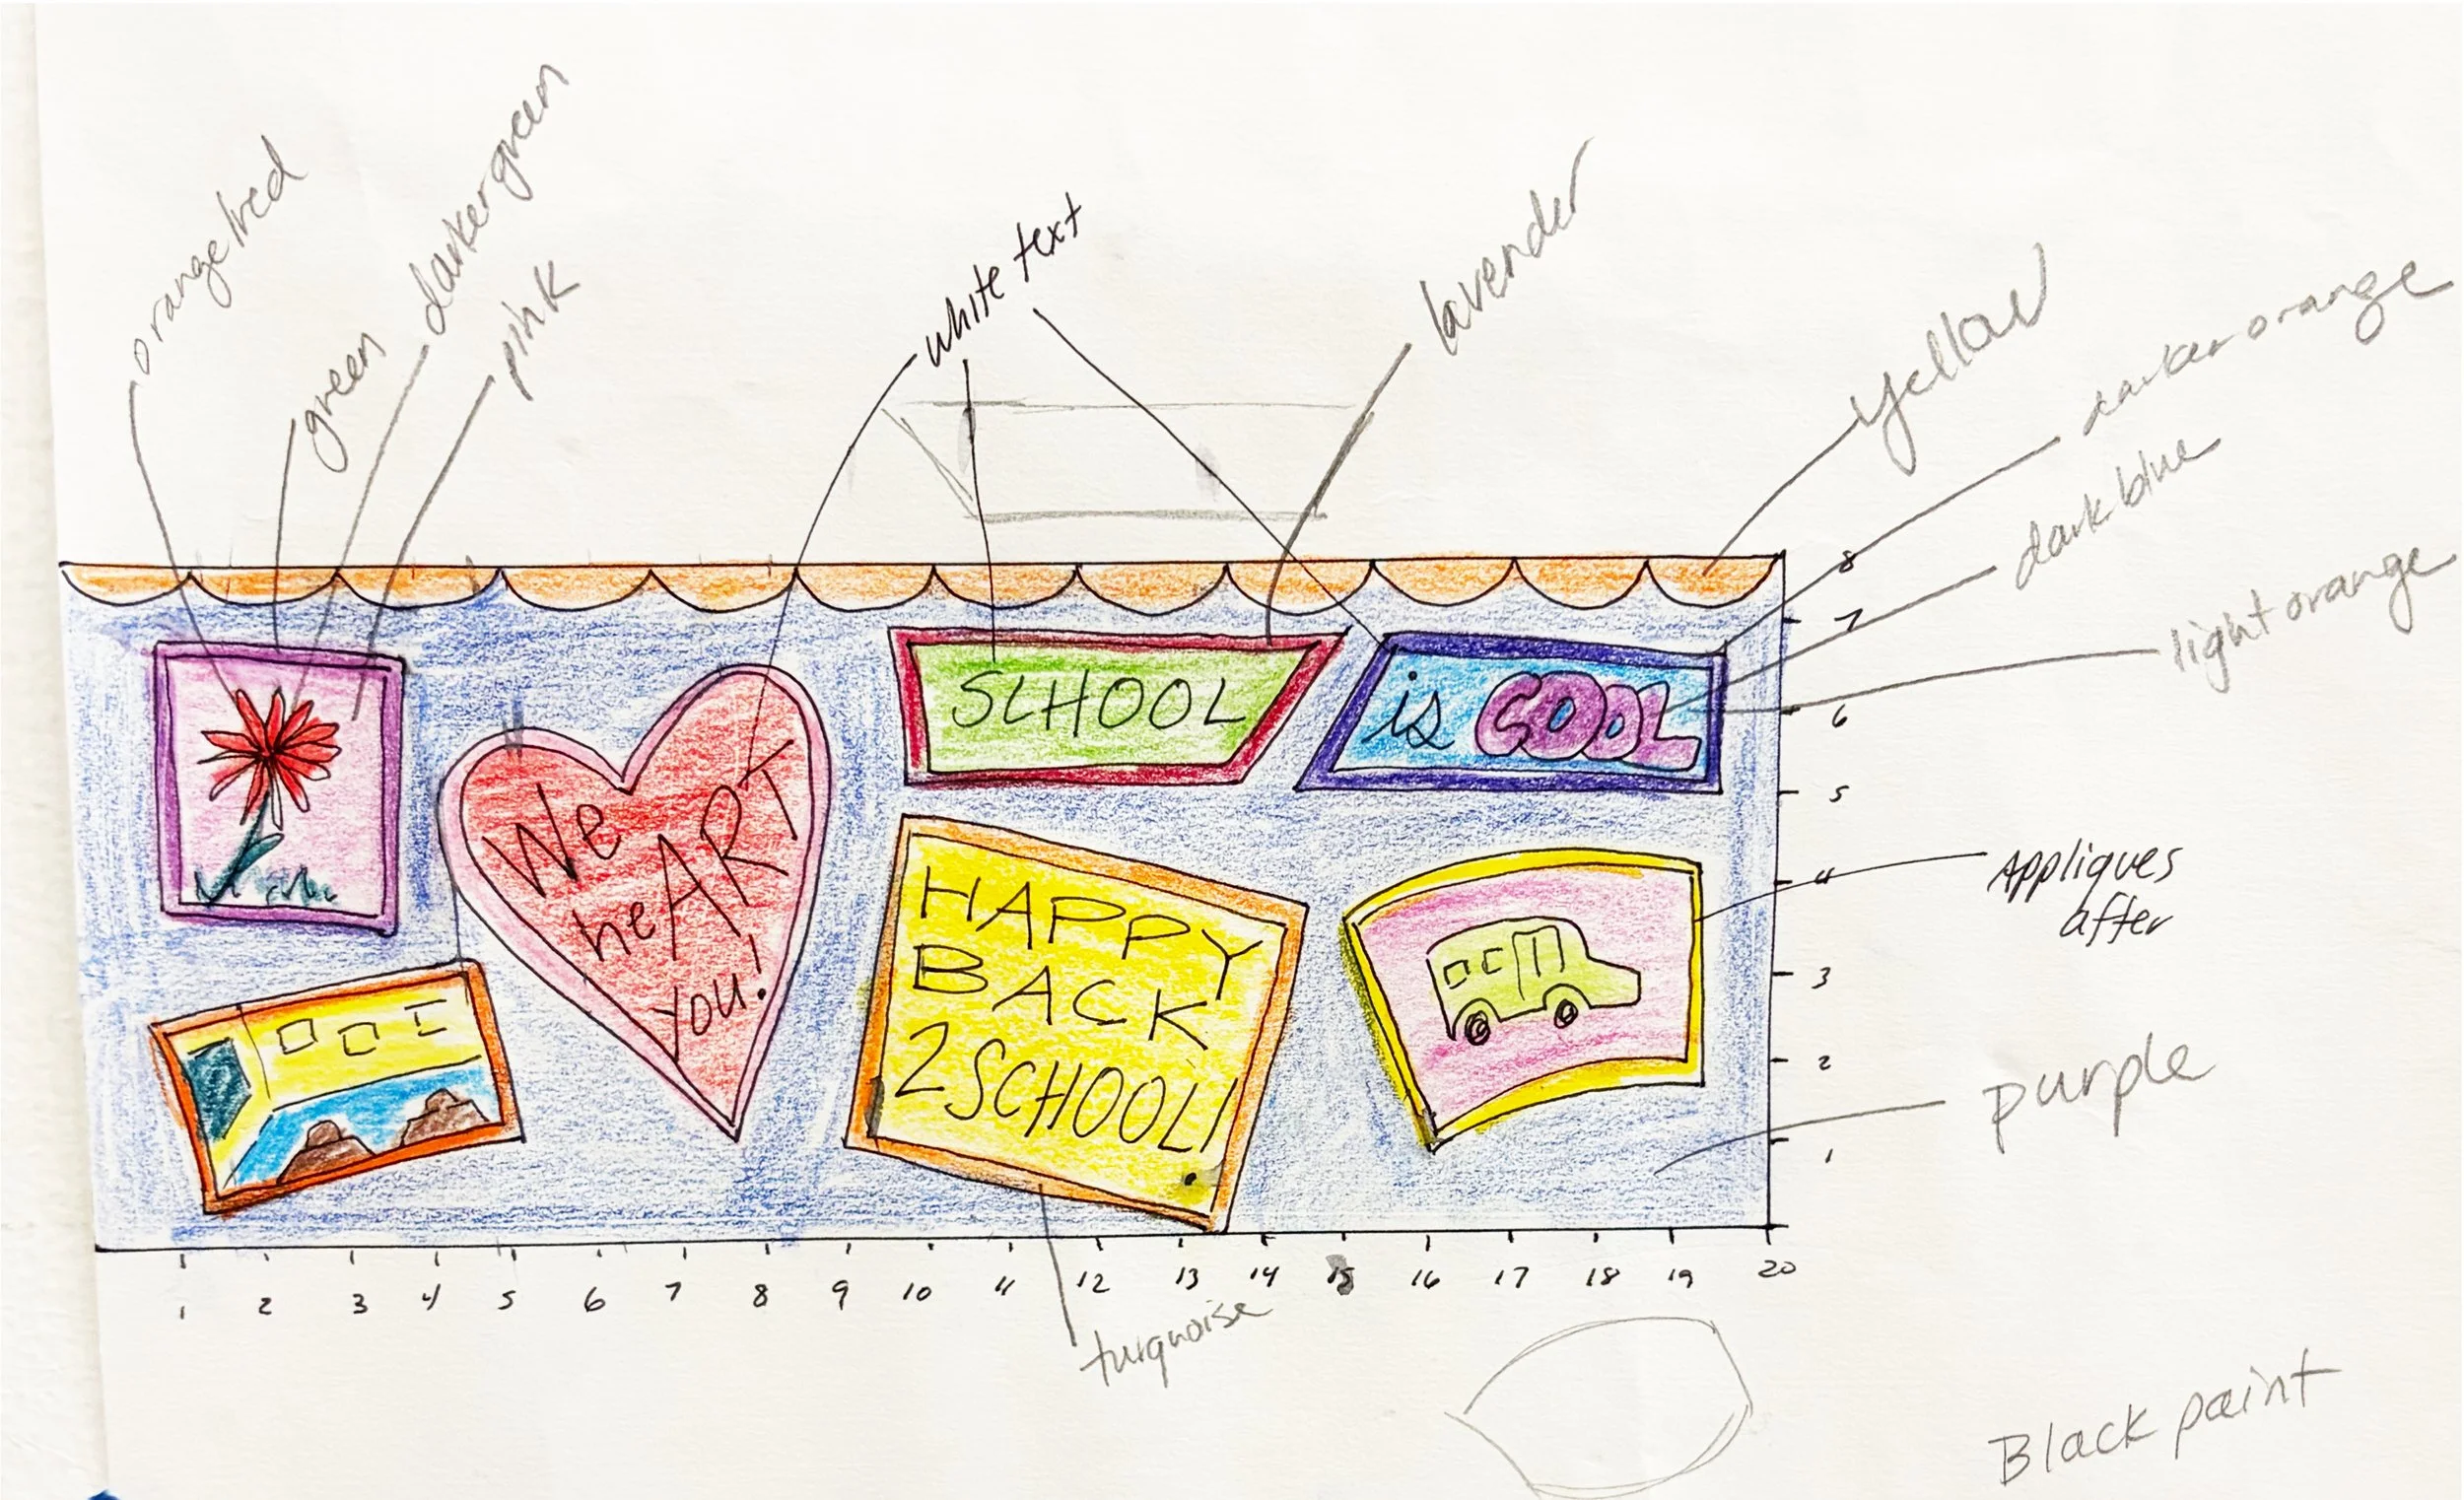 orange/red
green
darker green
pink
white text
lavender
yellow
darker orange
dark blue
light orange
SCHOOL
is COOL
We
heART
you!
HAPPY
BACK
2SCHOOL!
8
7
6
5
4
3
2
1
Appliques
after
purple
1 2 3 4 5 6 7 8 9 10 11 12 13 14 15 16 17 18 19 20
turquoise
Black paint